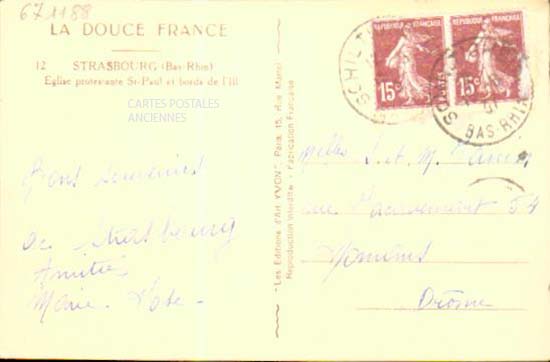 671188
LA DOUCE FRANCE
12 STRASBOURG (Bas-Rhin)
Eglise protestante St-Paul et bords de l'Ill
CARTES POSTALES
ANCIENNES
Bons Souvenirs
de Strasbourg
Amitié
Marie-Rose -
"Les Editions d'Art YVON", Paris, 15, Rue Martel
Reproduction Interdite - Fabrication Française
REPUBLIQUE FRANÇAISE
15c
REPUBLIQUE FRANÇAISE
15c
SCHILTI
BAS-RHIN
Melles S. et M.
rue 54
Romans
Drôme